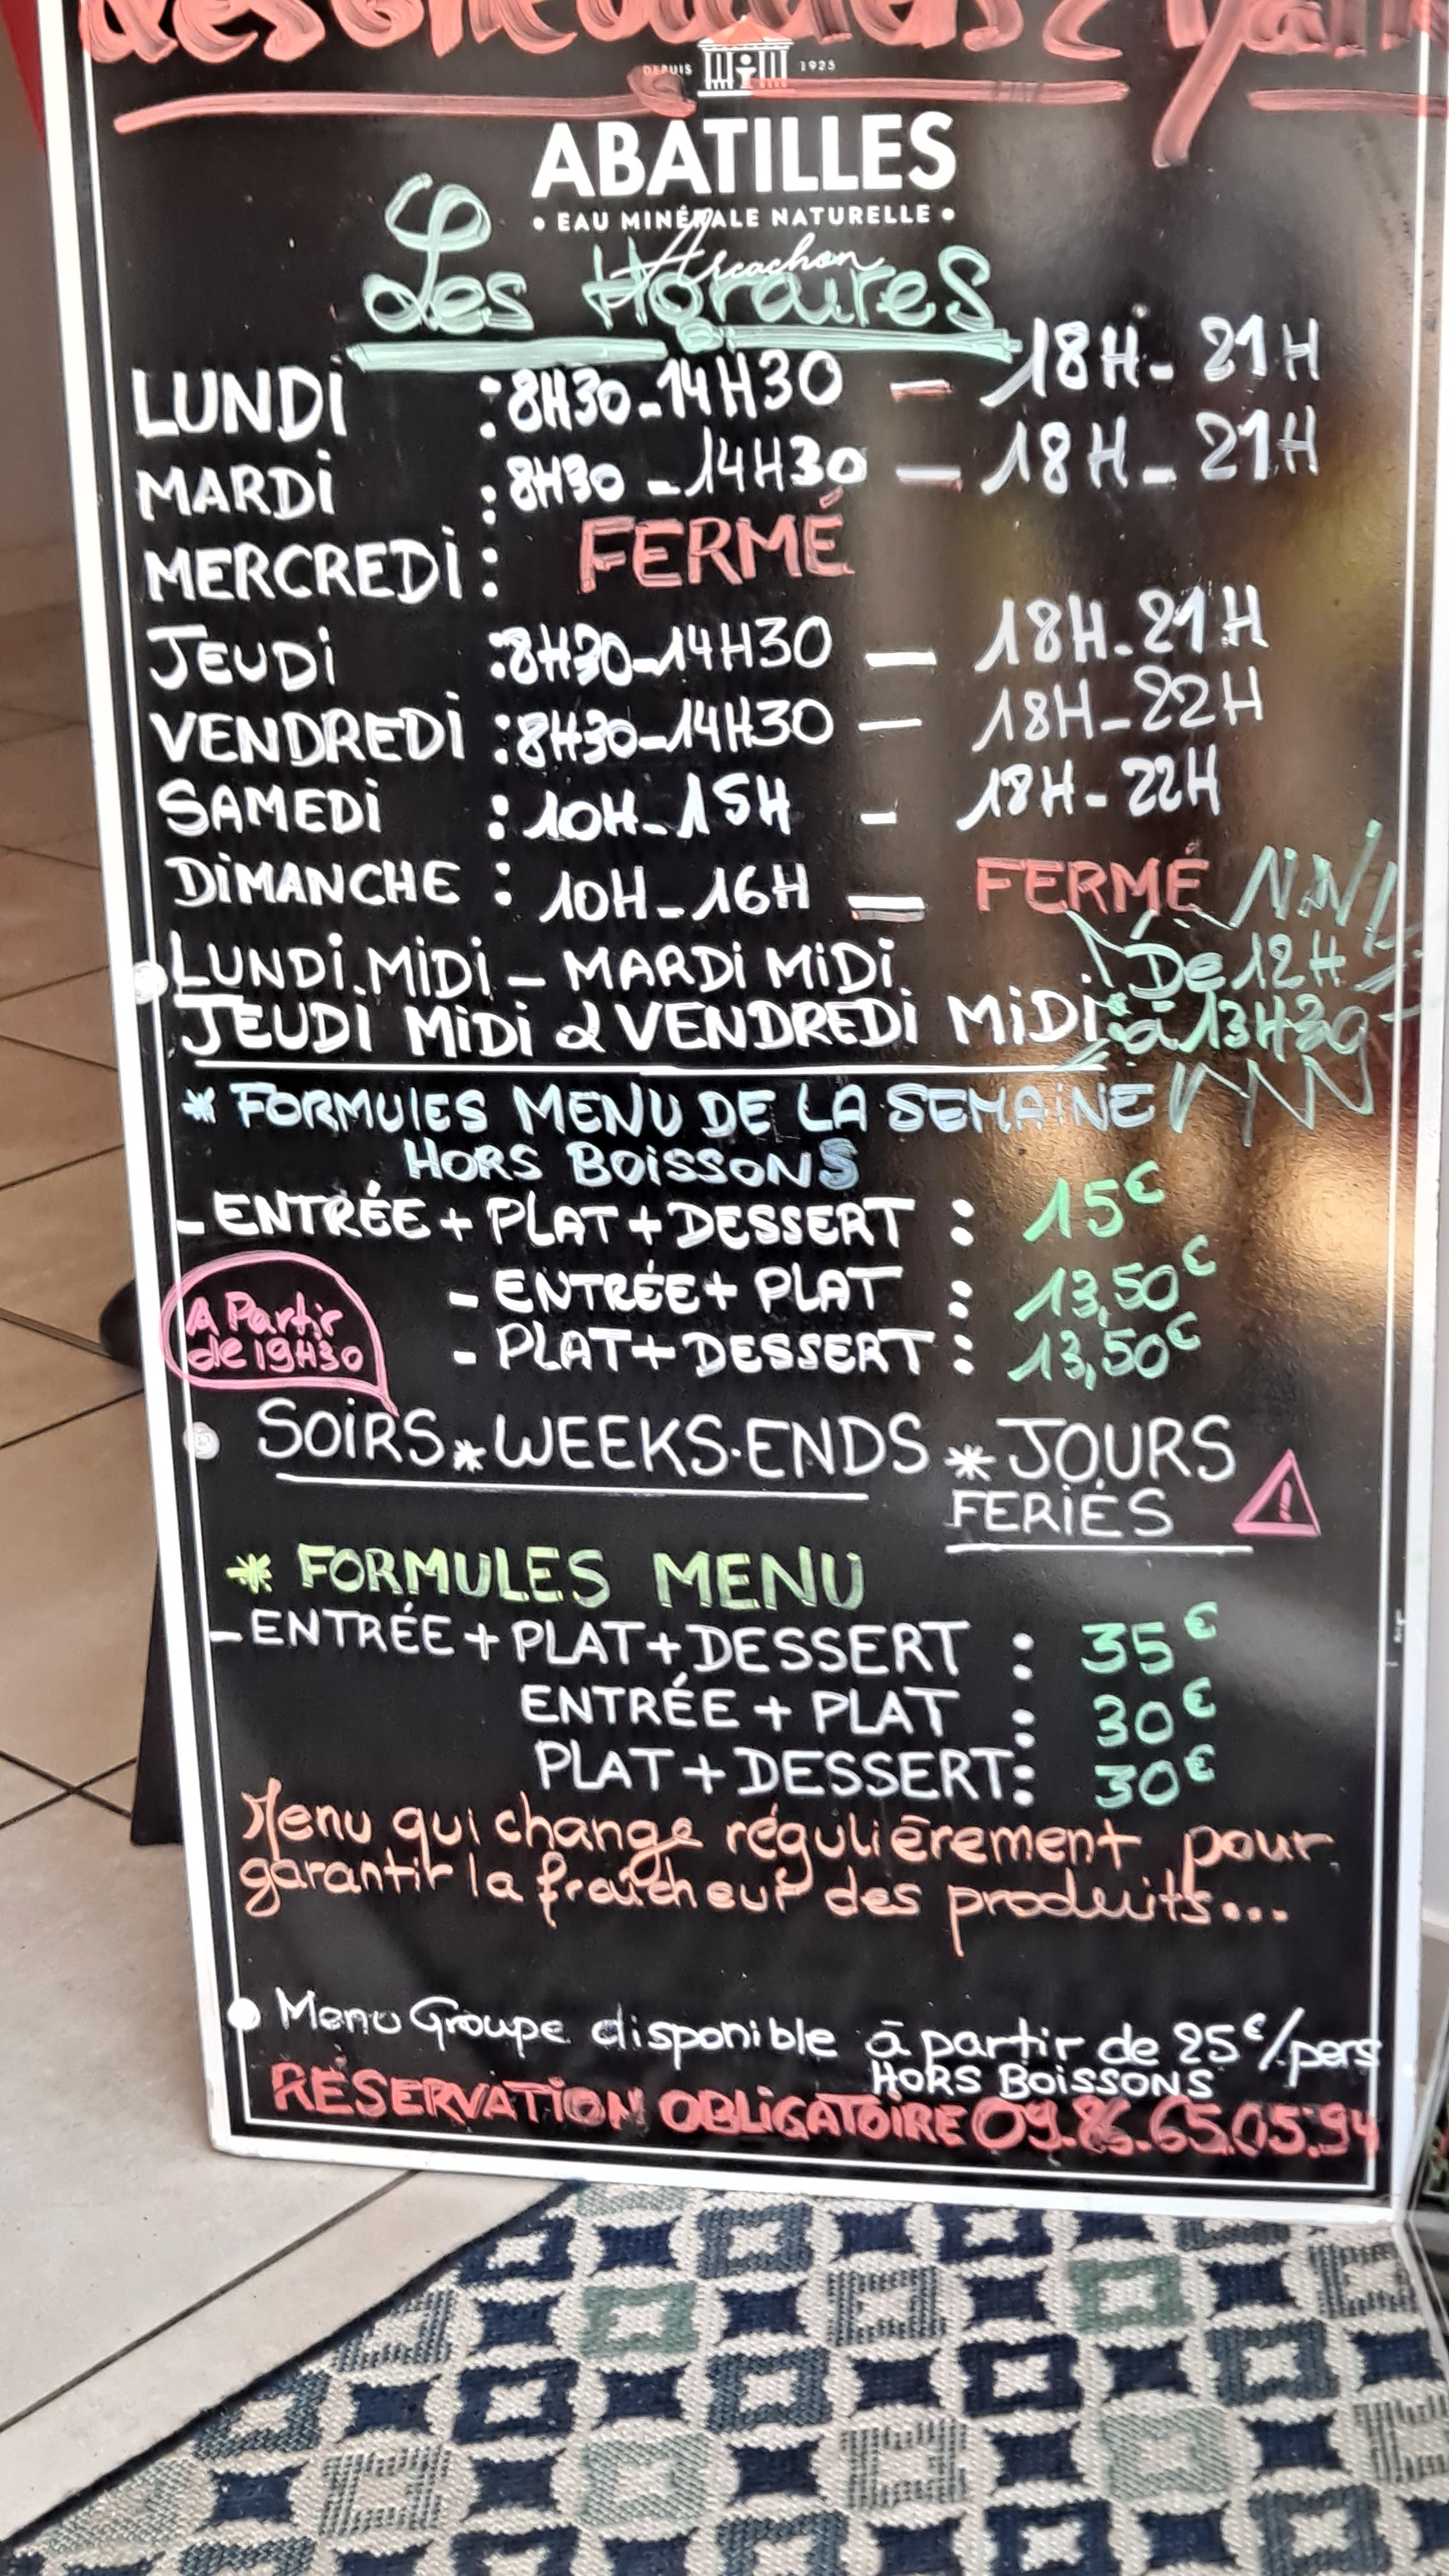 DEPUIS 1925
ABATILLES
• EAU MINÉRALE NATURELLE •
Arcachon
Les Horaires
LUNDI : 8H30-14H30 — 18H-21H
MARDI : 8H30-14H30 — 18H-21H
MERCREDI : FERMÉ
JEUDI : 8H30-14H30 — 18H-21H
VENDREDI : 8H30-14H30 — 18H-22H
SAMEDI : 10H-15H - 18H-22H
DIMANCHE : 10H-16H — FERMÉ
LUNDI.MIDI - MARDI MIDI De 12H
JEUDI MIDI & VENDREDI MIDI: à 13H30
* FORMULES MENU DE LA SEMAINE
HORS BOISSONS
- ENTRÉE + PLAT + DESSERT : 15€
- ENTRÉE + PLAT : 13,50€
A Partir
de 19H30
- PLAT + DESSERT : 13,50€
SOIRS * WEEKS.ENDS * JOURS
FERIÉS !
* FORMULES MENU
- ENTRÉE + PLAT + DESSERT : 35€
ENTRÉE + PLAT : 30€
PLAT + DESSERT : 30€
Menu qui change régulièrement pour
garantir la fraîcheur des produits...
Menu Groupe disponible à partir de 25€/pers
HORS BOISSONS
RÉSERVATION OBLIGATOIRE 09.86.65.05.94